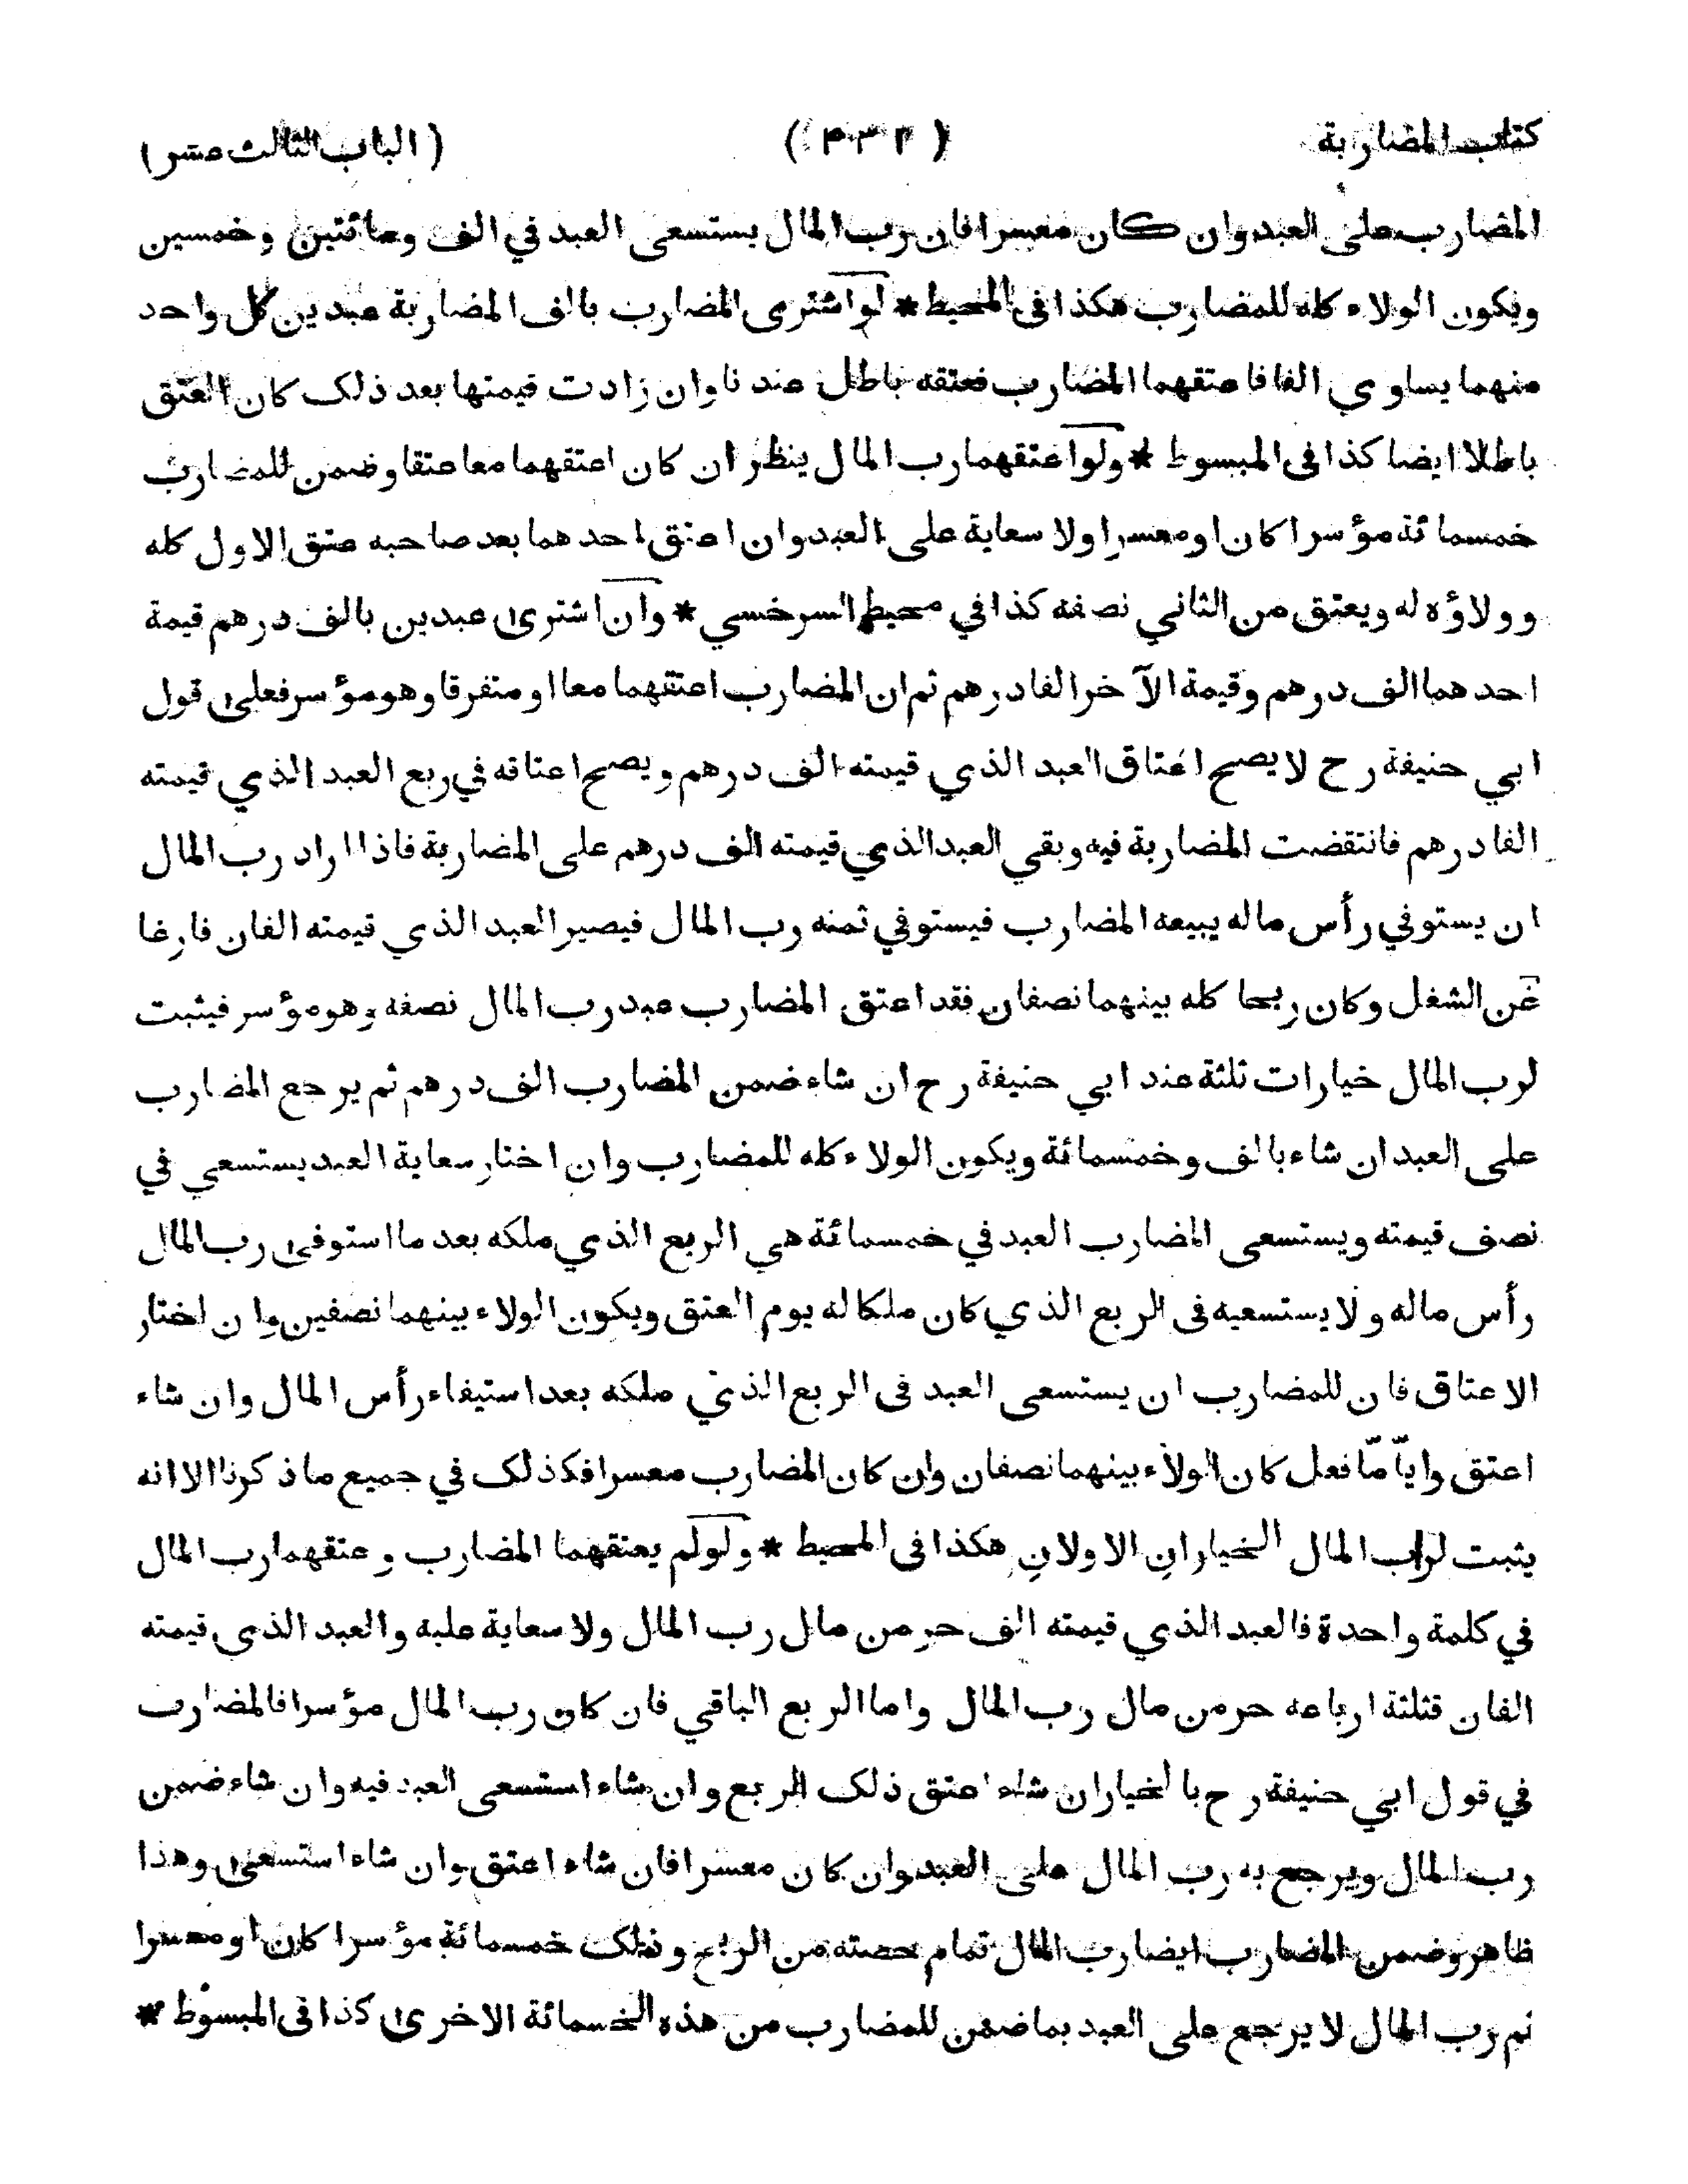 كتاب المضاربة
( ۴۳۲ )
( الباب الثالث عشر )
المضارب على العبد وان كان معسرا فان رب المال يستسعى العبد في الف ومائتين وخمسين
ويكون الولاء كله للمضارب هكذا فى المحيط * لو اشترى المضارب بالف المضاربة عبدين كل واحد
منهما يساوي الفا فاعتقهما المضارب فعتقه باطل عندنا وان زادت قيمتها بعد ذلك كان العتق
باطلا ايضا كذا فى المبسوط * ولو اعتقهما رب المال ينظر ان كان اعتقهما معا عتقا وضمن للمضارب
خمسمائة مؤسرا كان او معسرا ولا سعاية على العبد وان اعتق احدهما بعد صاحبه عتق الاول كله
وولاؤه له ويعتق من الثاني نصفه كذا في محيط السرخسي * وان اشترى عبدين بالف درهم قيمة
احدهما الف درهم وقيمة الآخر الفا درهم ثم ان المضارب اعتقهما معا او متفرقا وهو مؤسر فعلى قول
ابي حنيفة رح لا يصح اعتاق العبد الذي قيمته الف درهم ويصح اعتاقه في ربع العبد الذي قيمته
الفا درهم فانتقضت المضاربة فيه وبقي العبد الذي قيمته الف درهم على المضاربة فاذا اراد رب المال
ان يستوفي رأس ماله يبيعه المضارب فيستوفي ثمنه رب المال فيصير العبد الذي قيمته الفان فارغا
عن الشغل وكان ربحا كله بينهما نصفان فقد اعتق المضارب عبد رب المال نصفه وهو مؤسر فيثبت
لرب المال خيارات ثلثة عند ابي حنيفة رح ان شاء ضمن المضارب الف درهم ثم يرجع المضارب
على العبد ان شاء بالف وخمسمائة ويكون الولاء كله للمضارب وان اختار سعاية العبد يستسعي في
نصف قيمته ويستسعى المضارب العبد في خمسمائة هي الربع الذي ملكه بعد ما استوفى رب المال
رأس ماله ولا يستسعيه فى الربع الذي كان ملكا له يوم العتق ويكون الولاء بينهما نصفين وان اختار
الاعتاق فان للمضارب ان يستسعى العبد فى الربع الذي ملكه بعد استيفاء رأس المال وان شاء
اعتق وايّاً مّا فعل كان الولاء بينهما نصفان وان كان المضارب معسرا فكذلك في جميع ما ذكرنا الا انه
يثبت لرب المال الخياران الاولان هكذا فى المحيط * ولو لم يعتقهما المضارب وعتقهما رب المال
في كلمة واحدة فالعبد الذي قيمته الف حر من مال رب المال ولا سعاية عليه والعبد الذى قيمته
الفان فثلثة ارباعه حر من مال رب المال واما الربع الباقي فان كان رب المال مؤسرا فالمضارب
في قول ابي حنيفة رح بالخيار ان شاء اعتق ذلك الربع وان شاء استسعى العبد فيه وان شاء ضمن
رب المال ويرجع به رب المال على العبد وان كان معسرا فان شاء اعتق وان شاء استسعى وهذا
ظاهر وضمن المضارب ايضا رب المال تمام حصته من الربح وذلك خمسمائة مؤسرا كان او معسرا
ثم رب المال لا يرجع على العبد بما ضمن للمضارب من هذه الخمسمائة الاخرى كذا فى المبسوط *